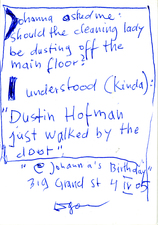 Johanna asked me:
should the cleaning lady
be dusting off the
main floor?
I understood (kinda):
"Dustin Hofman
just walked by the
door"
"@ Johanna's Birthday"
319 Grand st 4 IV 05